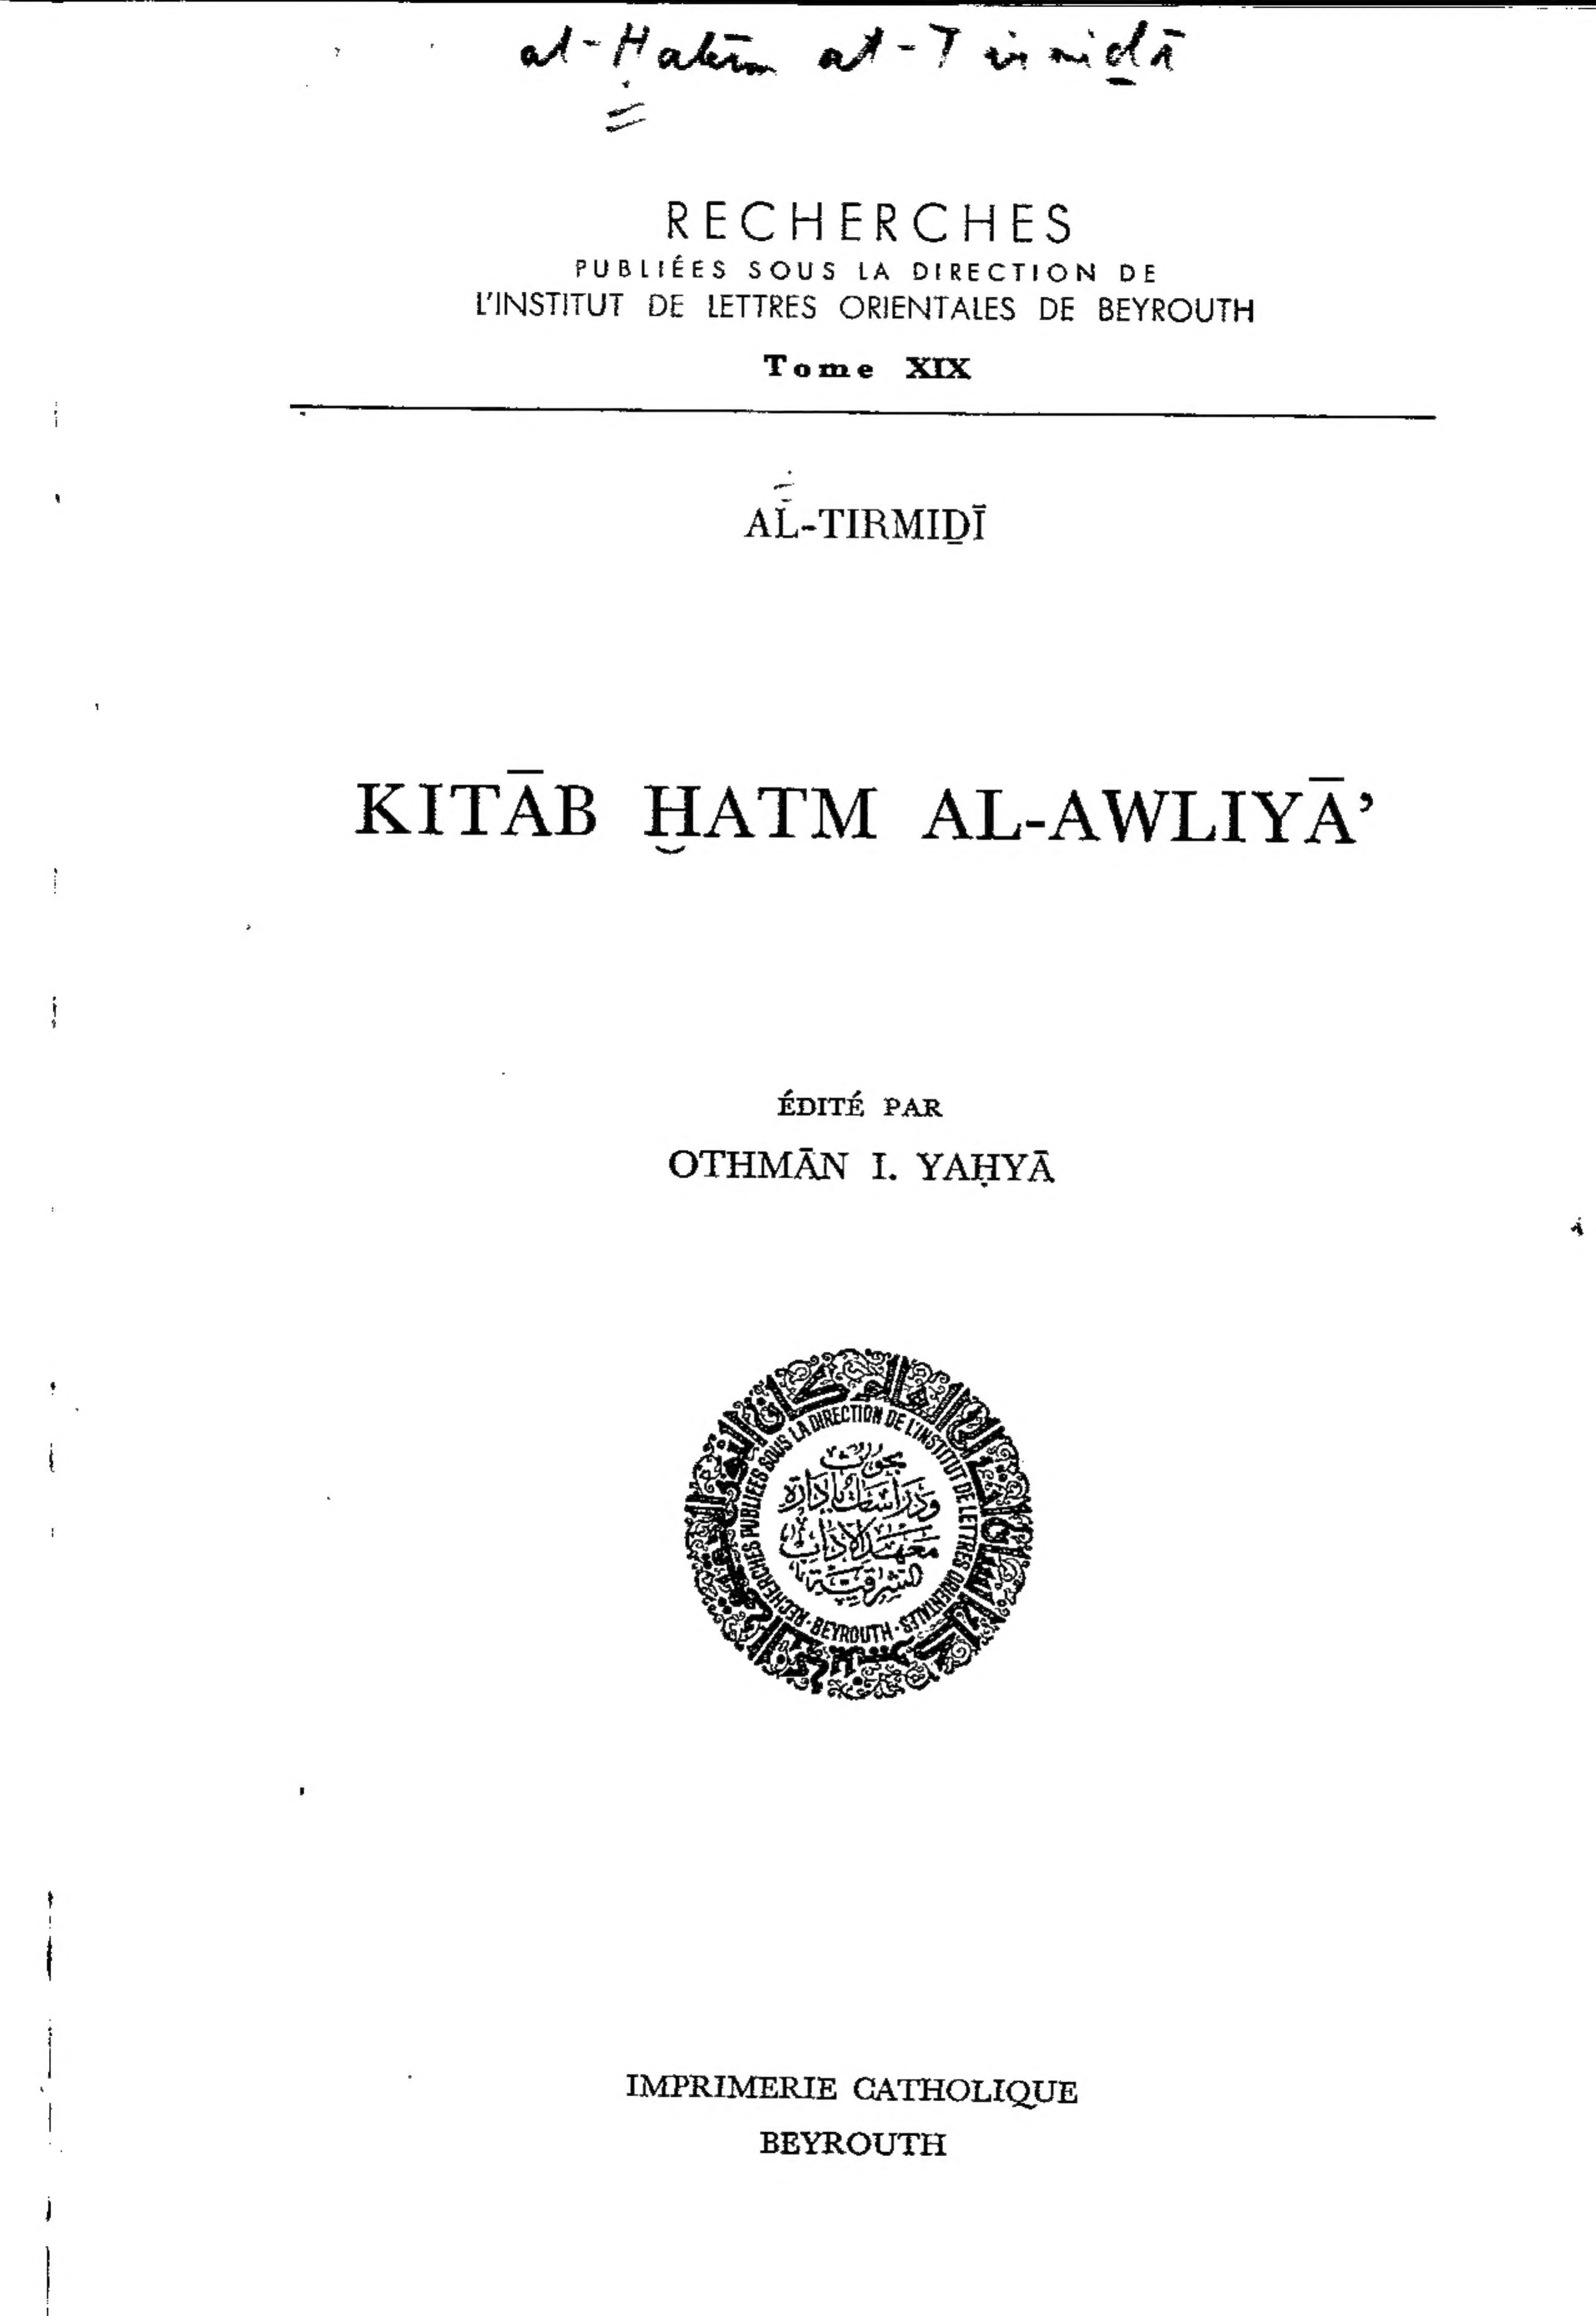 al-Ḥakīm at-Tirmiḏī
RECHERCHES
PUBLIÉES SOUS LA DIRECTION DE
L'INSTITUT DE LETTRES ORIENTALES DE BEYROUTH
Tome XIX
AL-TIRMIḎĪ
KITĀB ḪATM AL-AWLIYĀ’
ÉDITÉ PAR
OTHMĀN I. YAḤYĀ
RECHERCHES PUBLIÉES SOUS LA DIRECTION DE L'INSTITUT DE LETTRES ORIENTALES · BEYROUTH ·
بحوث
ودراسات بإدارة
معهد الآداب
الشرقية
IMPRIMERIE CATHOLIQUE
BEYROUTH